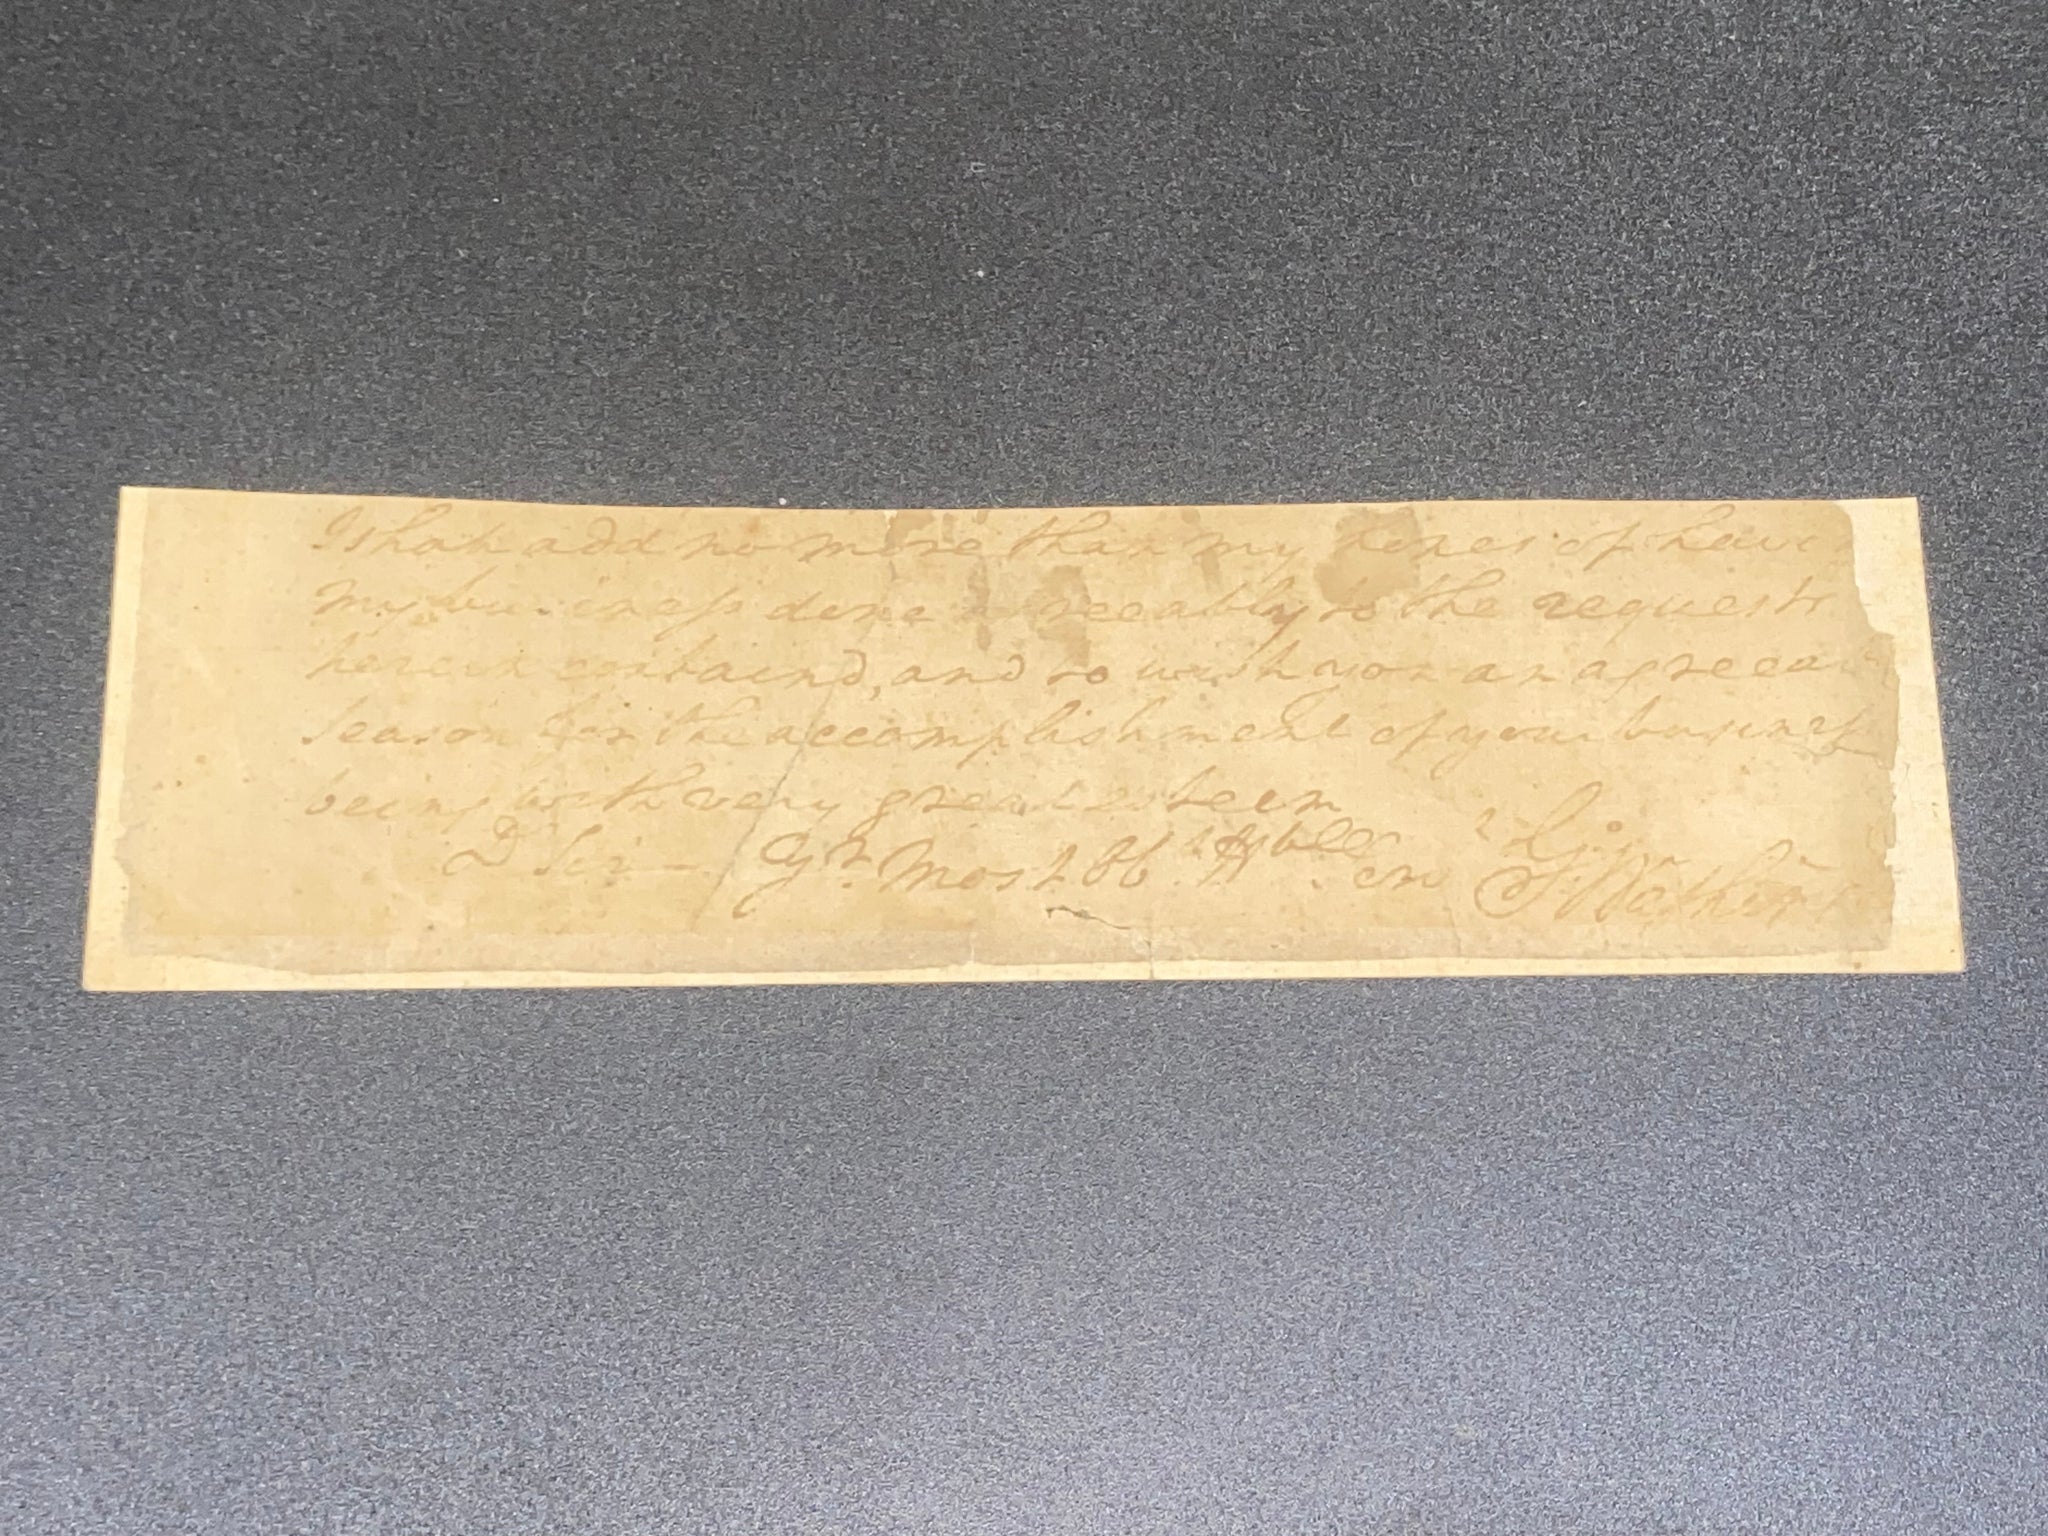 I shall add no more than my hopes of havin
my business done agreeably to the requests
herein containd, and to wish you an agreeab
Season for the accomplishment of your business
being with very great esteem
Dr Sir – Yr Most Obt Hble
Go: Washin